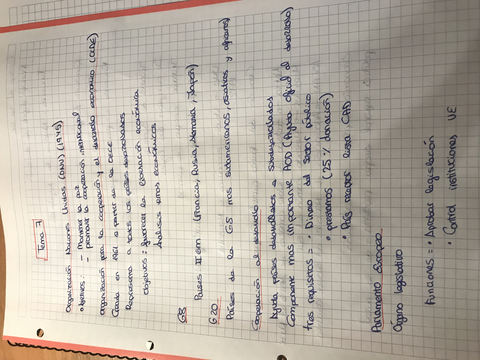 Tema 7
Organización Naciones Unidas (ONU) (1945)
Objetivos: - Promover la paz
- promover la cooperación internacional
Organización para la cooperación y el desarrollo económico (OCDE)
Creada en 1961 a partir de la OECE
Representa a todos los países desarrollados
Objetivos: Favorecer la economía
Analizar económicos
G8
Países (Francia, Rusia, Alemania, Japón)
G20
Países de la G8 mas sudamericanos, asiáticos y africanos
Cooperación al desarrollo
Ayuda países desarrollados a subdesarrollados
Componente mas importante AOD (Ayuda oficial al desarrollo)
tres requisitos = • Dinero del sector público
• prestamos (25% donación)
• País receptor lista CAD
Parlamento europeo
Organo legislativo
Funciones = • Aprobar legislación
• Control instituciones UE